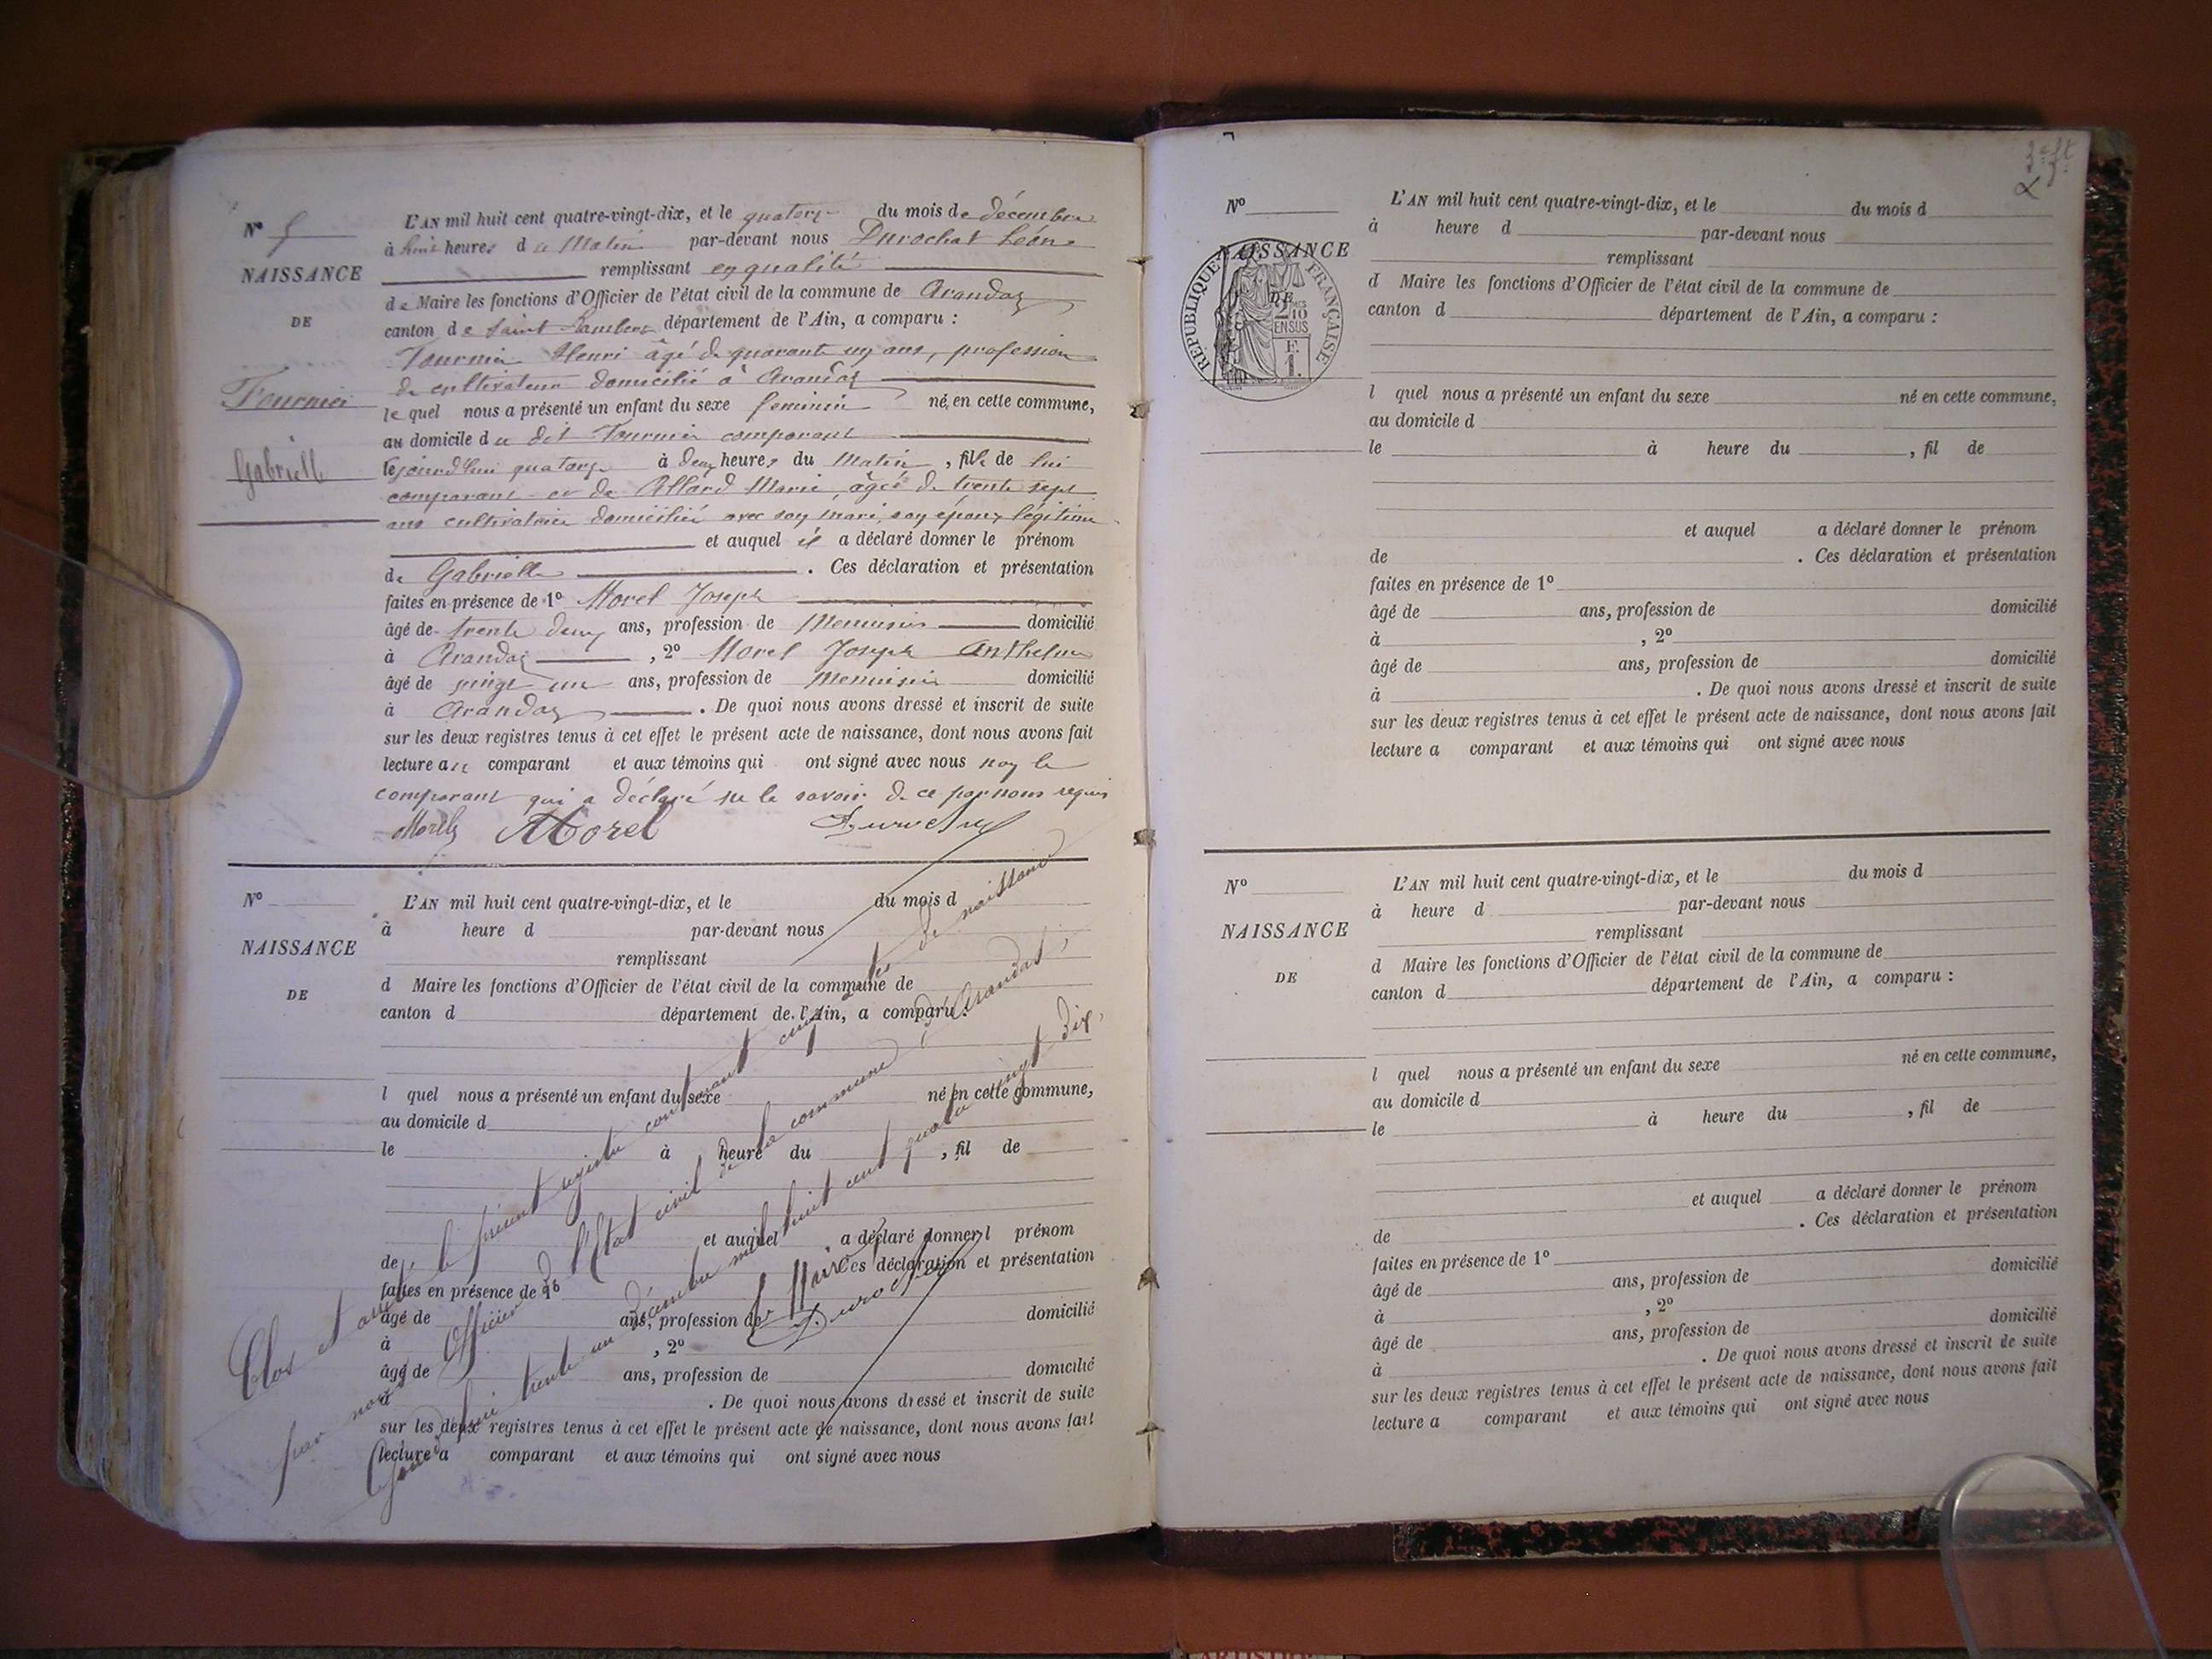 N° 5
NAISSANCE
DE
Fournier
Gabrielle
L'AN mil huit cent quatre-vingt-dix, et le quatorze du mois de décembre
à huit heures du Matin par-devant nous Durochat Léon
remplissant en qualité
de Maire les fonctions d'Officier de l'état civil de la commune de Arandas
canton de Saint Rambert département de l'Ain, a comparu :
Fournier Henri âgé de quarante un ans, profession
de cultivateur domicilié à Arandas
lequel nous a présenté un enfant du sexe feminin né, en cette commune,
au domicile du dit Fournier comparant
le jourd'hui quatorze à deux heures du Matin, fille de lui
comparant et de Allard Marie, âgée de trente sept
ans cultivatrice domiciliée avec son mari, son époux légitime
et auquel il a déclaré donner le prénom
de Gabrielle. Ces déclaration et présentation
faites en présence de 1° Morel Joseph
âgé de trente deux ans, profession de Menuisier domicilié
à Arandas, 2° Morel Joseph Anthelme
âgé de vingt un ans, profession de Menuisier domicilié
à Arandas. De quoi nous avons dressé et inscrit de suite
sur les deux registres tenus à cet effet le présent acte de naissance, dont nous avons fait
lecture au comparant et aux témoins qui ont signé avec nous non le
comparant qui a déclaré ne le savoir de ce par nous requis
Morel Morel Durochat
N°
NAISSANCE
DE
L'AN mil huit cent quatre-vingt-dix, et le du mois d
à heure d par-devant nous
remplissant
d Maire les fonctions d'Officier de l'état civil de la commune de
canton d département de l'Ain, a comparu :
l quel nous a présenté un enfant du sexe né en cette commune,
au domicile d
le à heure du , fil de
et auquel a déclaré donner l prénom
de . Ces déclaration et présentation
faites en présence de 1°
âgé de ans, profession de domicilié
à , 2°
âgé de ans, profession de domicilié
à . De quoi nous avons dressé et inscrit de suite
sur les deux registres tenus à cet effet le présent acte de naissance, dont nous avons fait
lecture a comparant et aux témoins qui ont signé avec nous
Clos et arrêté le présent registre contenant cinq actes de naissance
par nous Officier de l'Etat civil de la commune d'Arandas,
ce jourd'hui trente un décembre mil huit cent quatre vingt dix,
le Maire
Durochat
N°
NAISSANCE
DE
RÉPUBLIQUE FRANÇAISE
2/10
EN SUS
F.
1.
L'AN mil huit cent quatre-vingt-dix, et le du mois d
à heure d par-devant nous
remplissant
d Maire les fonctions d'Officier de l'état civil de la commune de
canton d département de l'Ain, a comparu :
l quel nous a présenté un enfant du sexe né en cette commune,
au domicile d
le à heure du , fil de
et auquel a déclaré donner le prénom
de . Ces déclaration et présentation
faites en présence de 1°
âgé de ans, profession de domicilié
à , 2°
âgé de ans, profession de domicilié
à . De quoi nous avons dressé et inscrit de suite
sur les deux registres tenus à cet effet le présent acte de naissance, dont nous avons fait
lecture a comparant et aux témoins qui ont signé avec nous
N°
NAISSANCE
DE
L'AN mil huit cent quatre-vingt-dix, et le du mois d
à heure d par-devant nous
remplissant
d Maire les fonctions d'Officier de l'état civil de la commune de
canton d département de l'Ain, a comparu :
l quel nous a présenté un enfant du sexe né en cette commune,
au domicile d
le à heure du , fil de
et auquel a déclaré donner le prénom
de . Ces déclaration et présentation
faites en présence de 1°
âgé de ans, profession de domicilié
à , 2°
âgé de ans, profession de domicilié
à . De quoi nous avons dressé et inscrit de suite
sur les deux registres tenus à cet effet le présent acte de naissance, dont nous avons fait
lecture a comparant et aux témoins qui ont signé avec nous